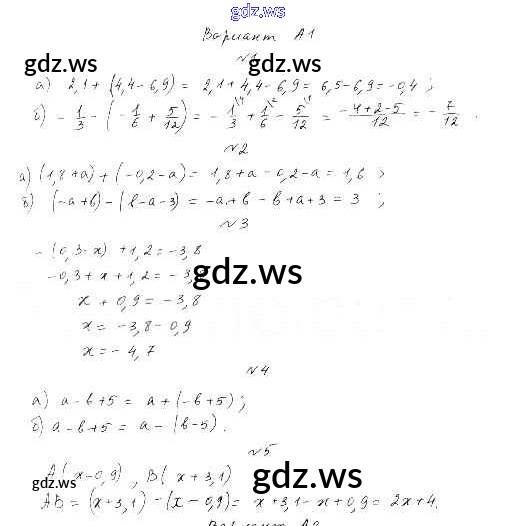 gdz.ws
Вариант А1
gdz.ws gdz.ws
№1
а) 2,1 + (4,4 - 6,9) = 2,1 + 4,4 - 6,9 = 6,5 - 6,9 = -0,4 ;
б) - 1/3 - (- 1/6 + 5/12) = - 1/3 + 1/6 - 5/12 = (-4+2-5)/12 = - 7/12 .
№2
а) (1,8 + a) + (-0,2 - a) = 1,8 + a - 0,2 - a = 1,6 ;
б) (-a + b) - (b - a - 3) = -a + b - b + a + 3 = 3 ;
№3
- (0,3 - x) + 1,2 = -3,8
-0,3 + x + 1,2 = -3,8
gdz.ws
x + 0,9 = -3,8
x = -3,8 - 0,9
x = -4,7
№4
а) a - b + 5 = a + (-b + 5) ;
gdz.ws
б) a - b + 5 = a - (b - 5) .
№5
A( x - 0,9) , B( x + 3,1)
gdz.ws gdz.ws
AB = (x + 3,1) - (x - 0,9) = x + 3,1 - x + 0,9 = 2x + 4.
Вариант А2